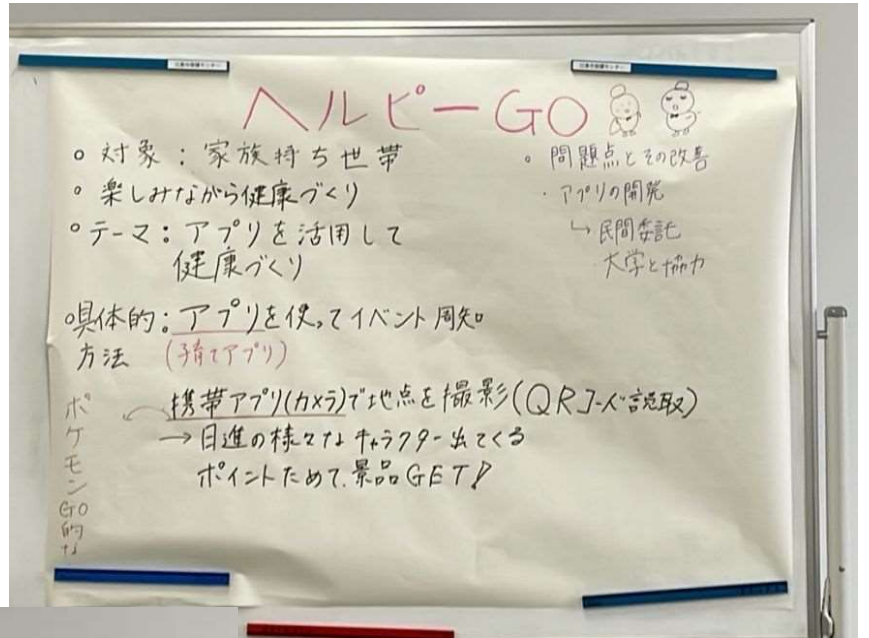 ヘルピーGO
○ 対象：家族持ち世帯
○ 楽しみながら健康づくり
○ テーマ：アプリを活用して
健康づくり
○ 具体的：アプリを使ってイベント周知
方法 (子育てアプリ)
携帯アプリ(カメラ)で地点を撮影(QRコード読取)
→日進の様々なキャラクター出てくる
ポイントためて、景品GET!
ポケモンGO的な
○ 問題点とその改善
・アプリの開発
↳民間委託
・大学と協力